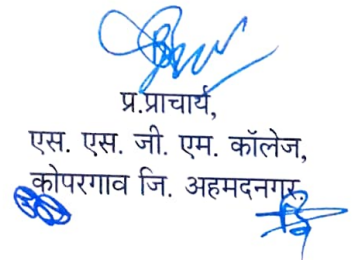 प्र.प्राचार्य,
एस. एस. जी. एम. कॉलेज,
कोपरगाव जि. अहमदनगर.